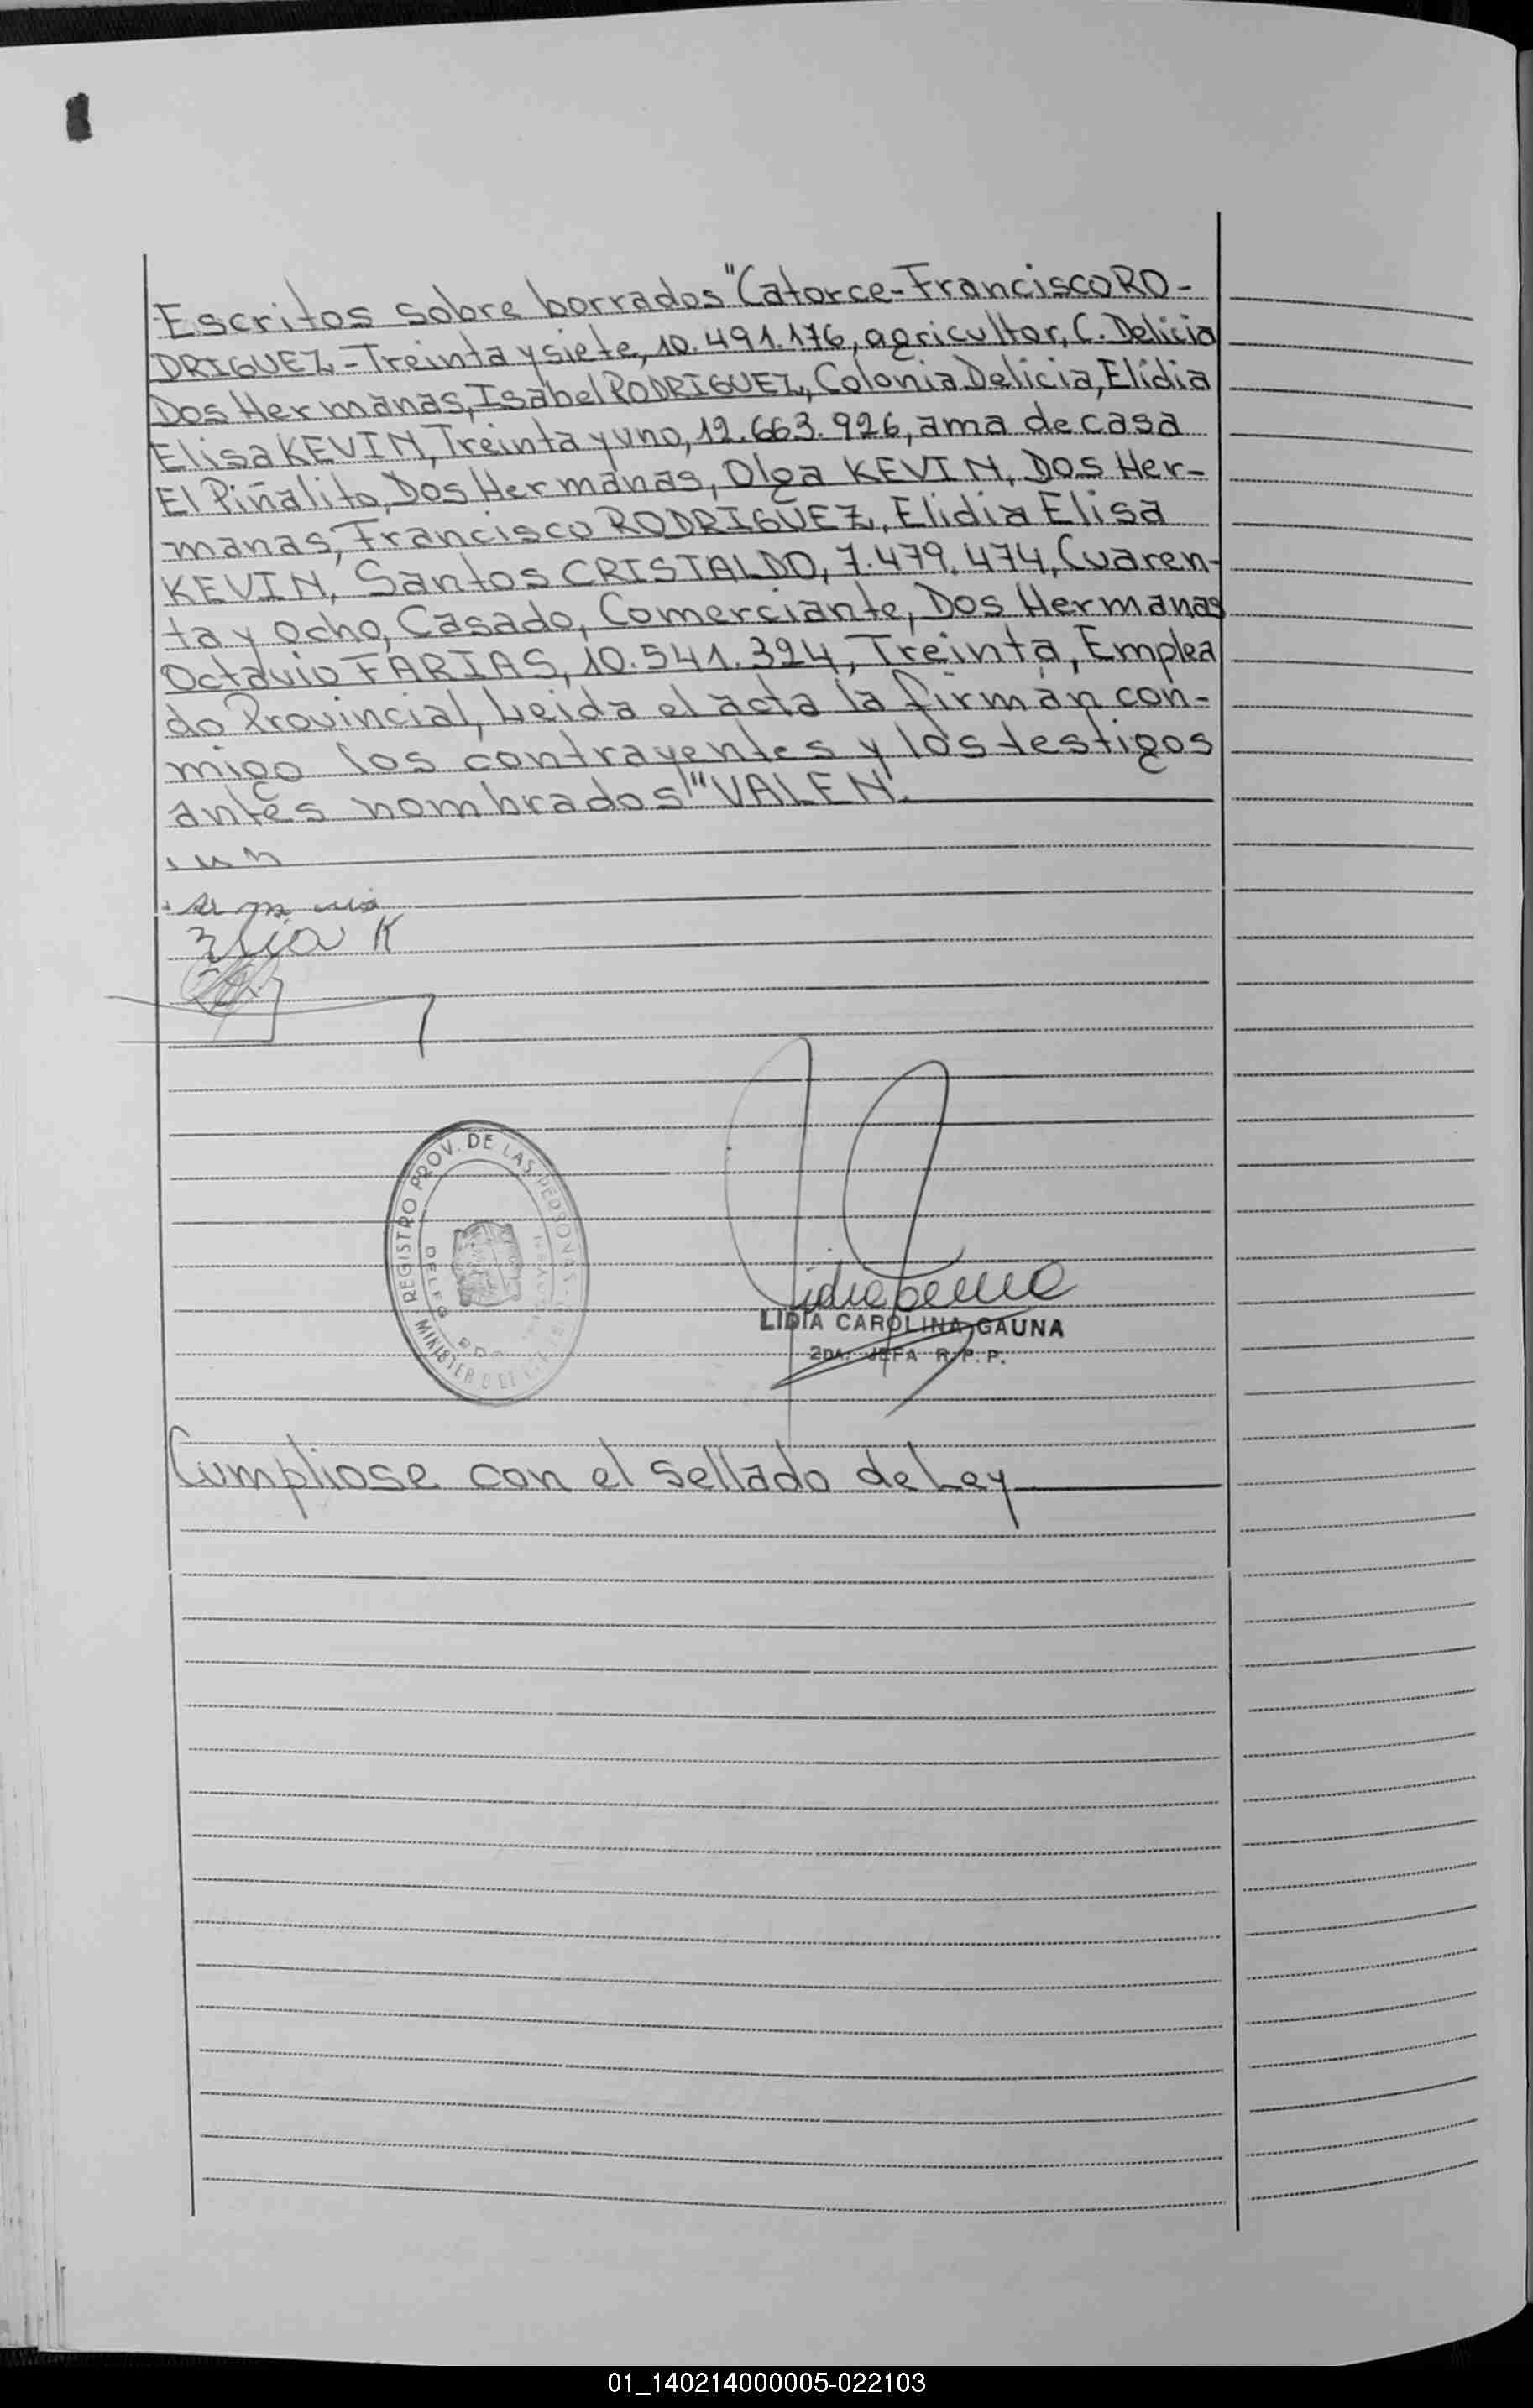 Escritos sobre borrados "Catorce-Francisco RO-
DRIGUEZ,-Treinta y siete, 10.491.176, agricultor, C. Delicia
Dos Hermanas, Isabel RODRIGUEZ, Colonia Delicia, Elidia
Elisa KEVIN, Treinta y uno, 12.663.926, ama de casa
El Piñalito, Dos Hermanas, Olga KEVIN, Dos Her-
manas, Francisco RODRIGUEZ, Elidia Elisa
KEVIN, Santos CRISTALDO, 7.479.474, Cuaren-
ta y ocho, Casado, Comerciante, Dos Hermanas
Octavio FARIAS, 10.541.324, Treinta, Emplea
do Provincial, Leida el acta la firman con-
migo los contrayentes y los testigos
antes nombrados" VALEN.
REGISTRO PROV. DE LAS PERSONAS
LIDIA CAROLINA GAUNA
2DA. JEFA R. P. P.
Cumpliose con el sellado de Ley
01_140214000005-022103